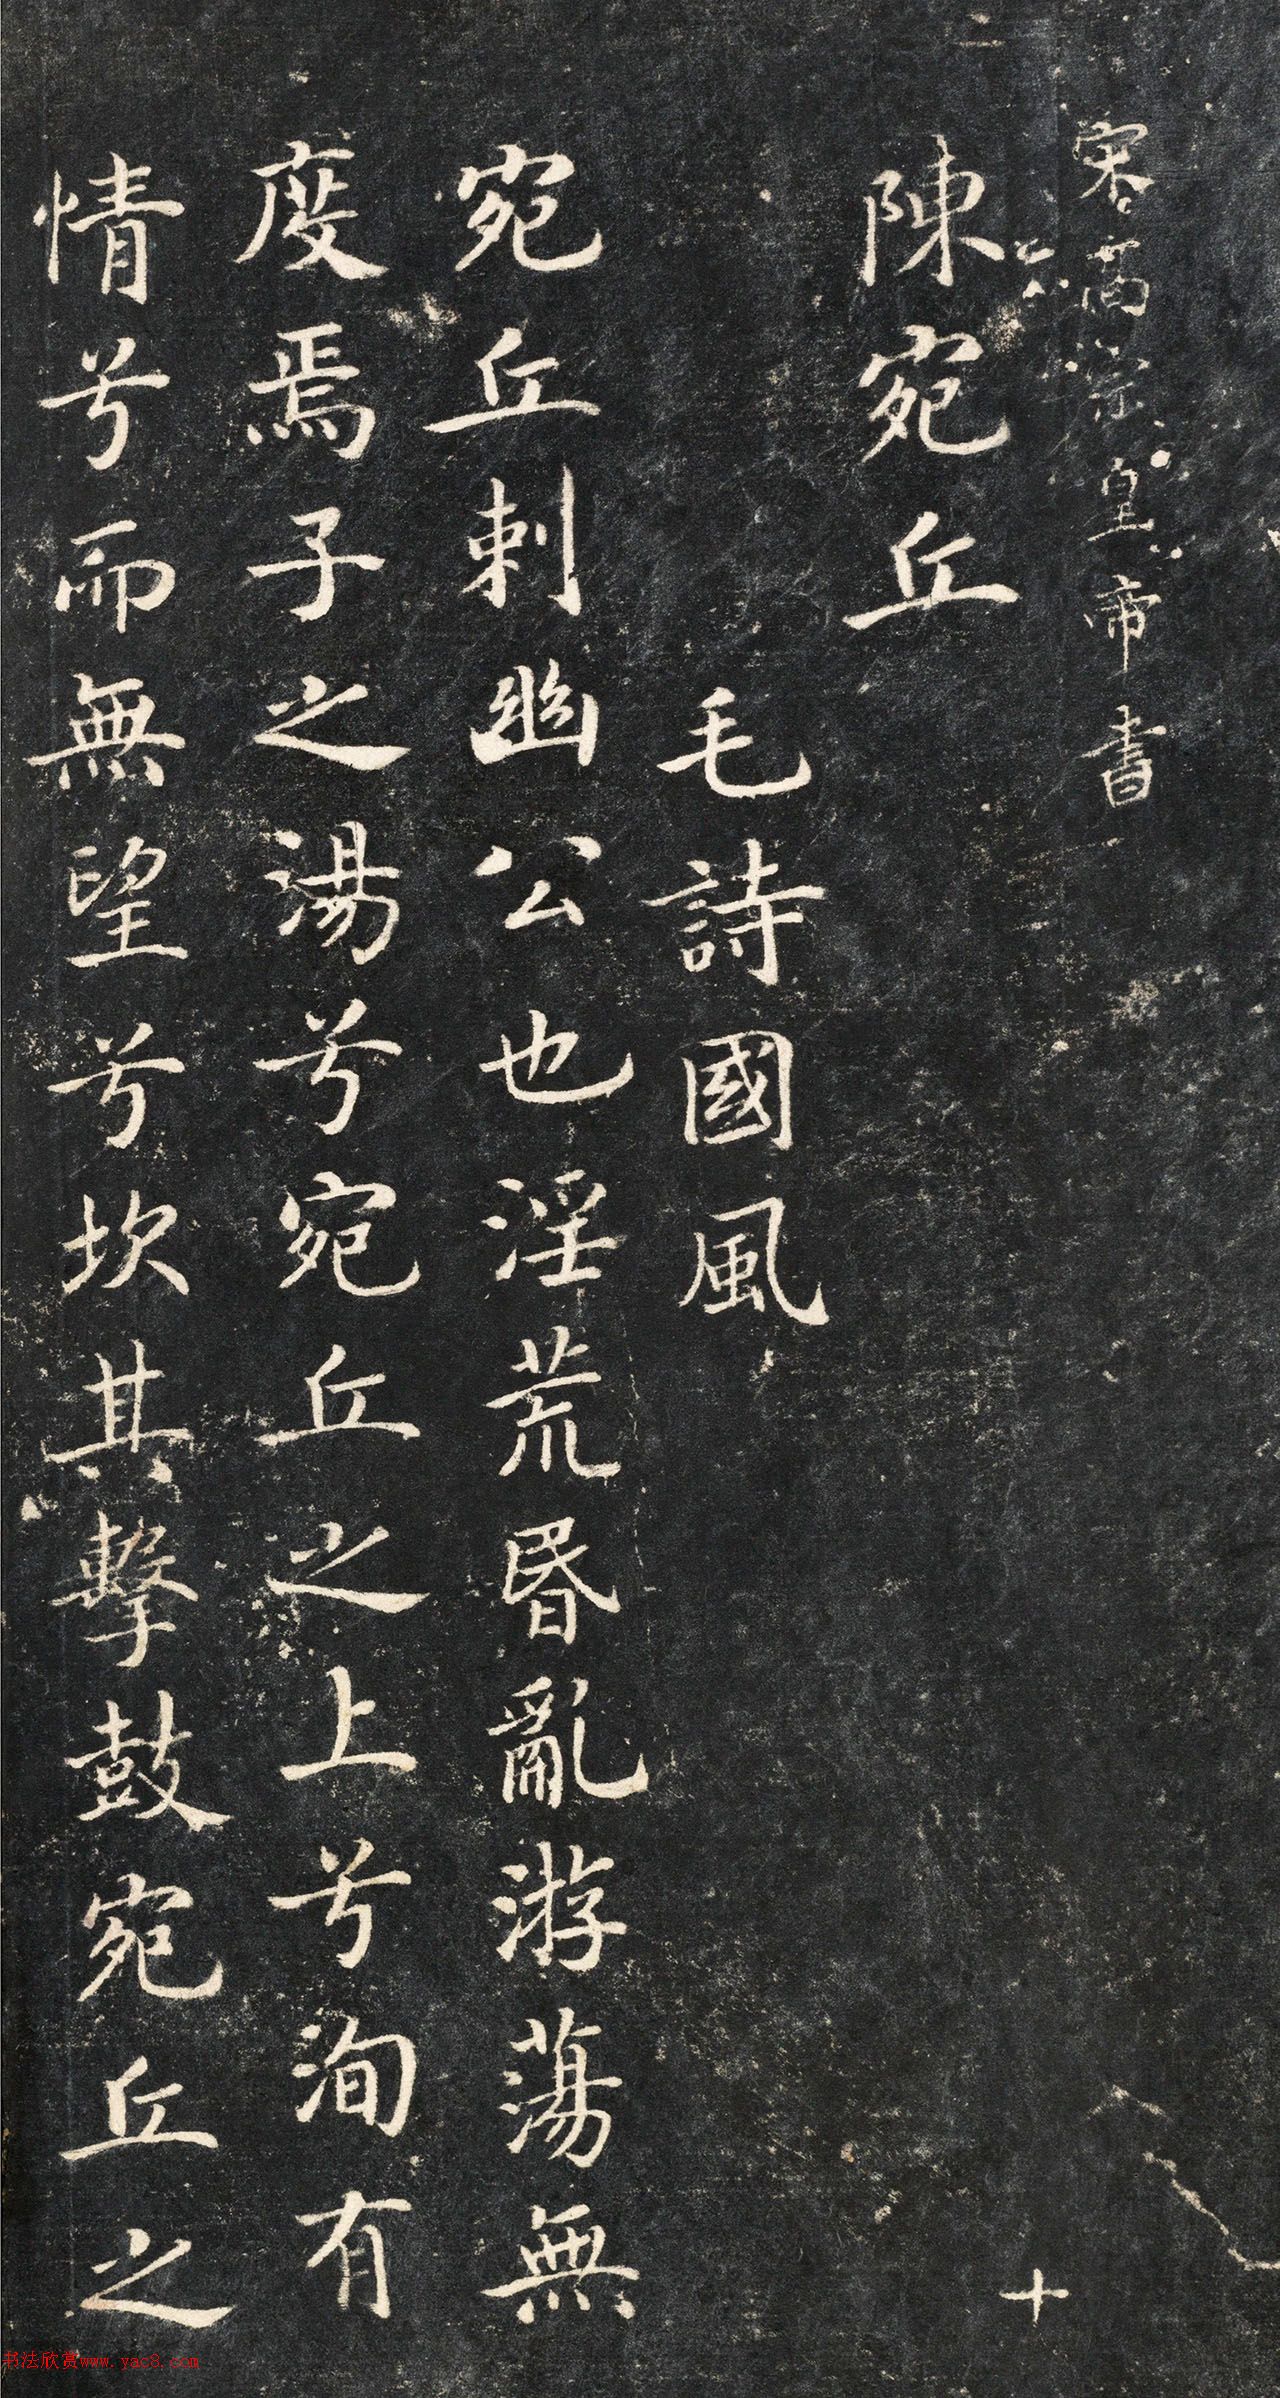 宋高宗皇帝書
陳宛丘
毛詩國風
宛丘刺幽公也淫荒昬亂游蕩無
度焉子之湯兮宛丘之上兮洵有
情兮而無望兮坎其擊鼓宛丘之
十
书法欣赏www.yac8.com